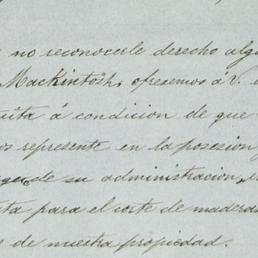 no reconocerle derecho
MacKintosh, ofresemos á V.
á condicion de que
represente en la posesion
de su administracion,
para el corte de maderas
de nuestra propiedad.